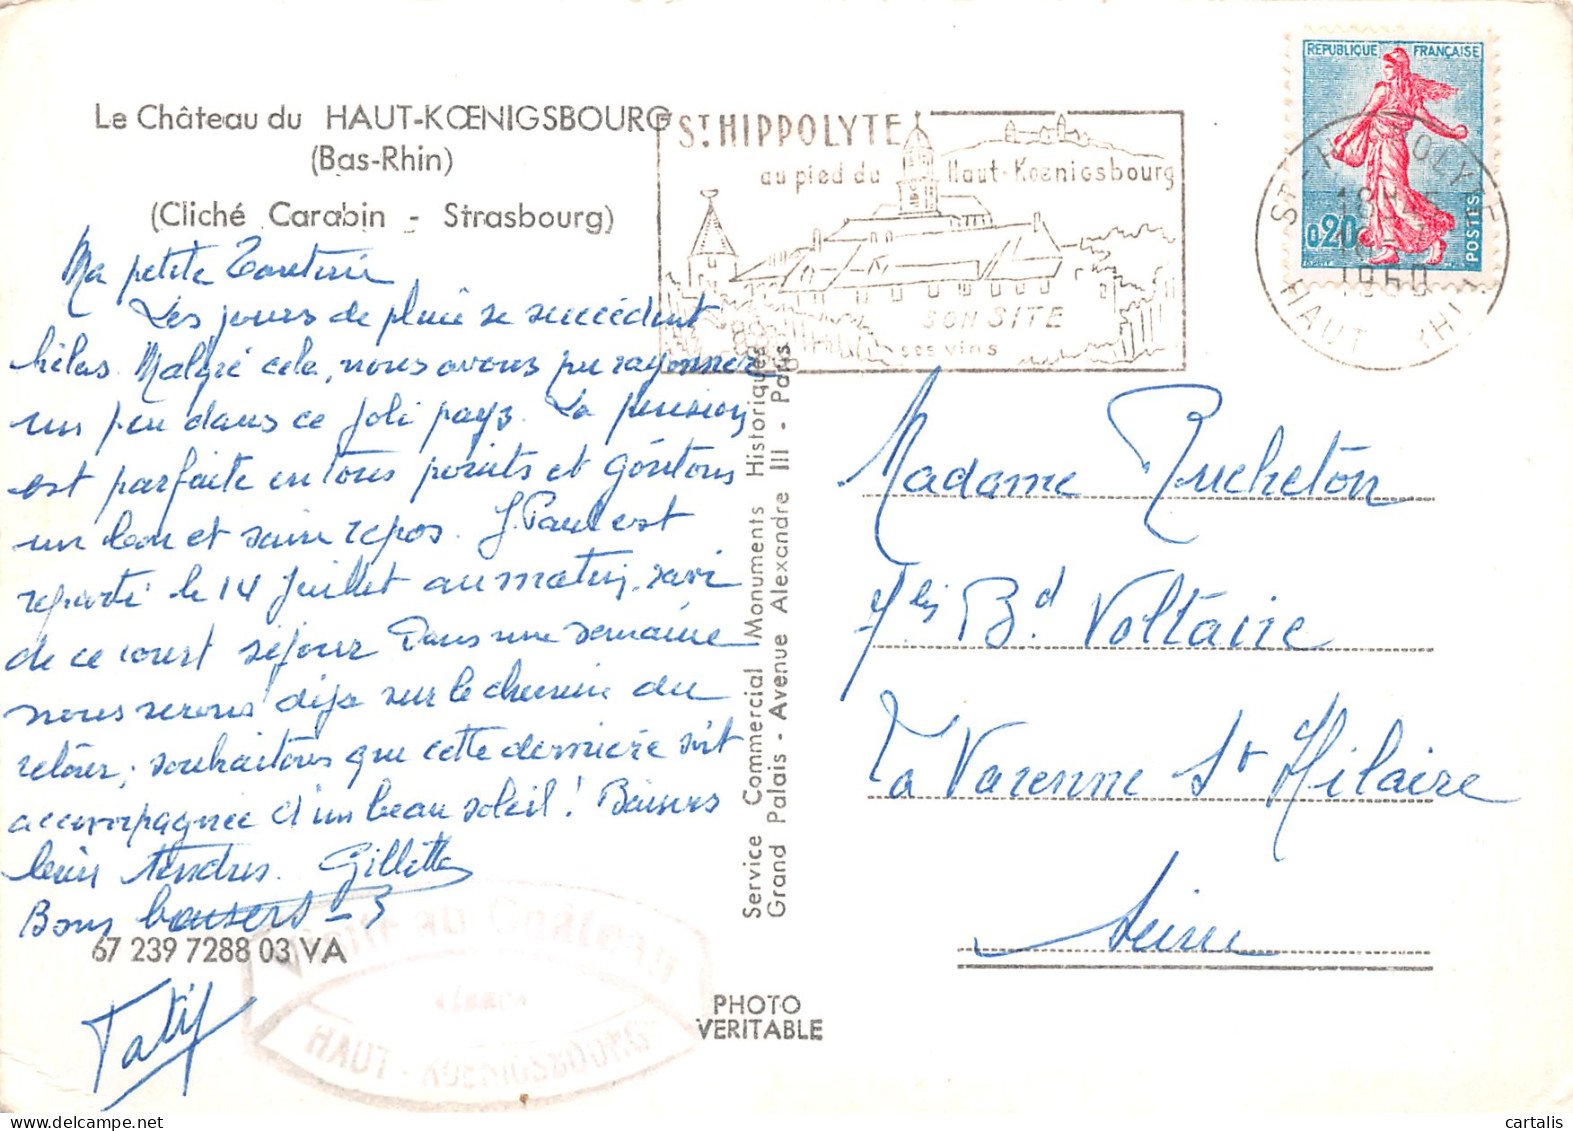 Le Château du HAUT-KŒNIGSBOURG
(Bas-Rhin)
(Cliché Carabin - Strasbourg)
Ma petite
Les jours de pluie se succèdent
hélas. Malgré cela, nous avons pu rayonner
un peu dans ce joli pays. La pension
est parfaite en tous points et goûtons
un bon et sain repos. J. Paul est
reparti le 14 Juillet au matin, ravi
de ce court séjour. Dans une semaine
nous serons déjà sur le chemin du
retour; souhaitons que cette dernière soit
accompagnée d'un beau soleil! Baisers
bien tendres. Gillette
Bons baisers
67 239 7288 03 VA
Tatif
Service Commercial Monuments Historiques
Grand Palais - Avenue Alexandre III - Paris
PHOTO
VERITABLE
ST HIPPOLYTE
au pied du Haut-Kœnigsbourg
SON SITE
ses vins
REPUBLIQUE FRANÇAISE
0,20
POSTES
ST-HIPPOLYTE
18H
1960
HAUT RHIN
Madame Rucheton
7 bis Bd. Voltaire
La Varenne St Hilaire
Seine
HAUT - KOENIGSBOURG